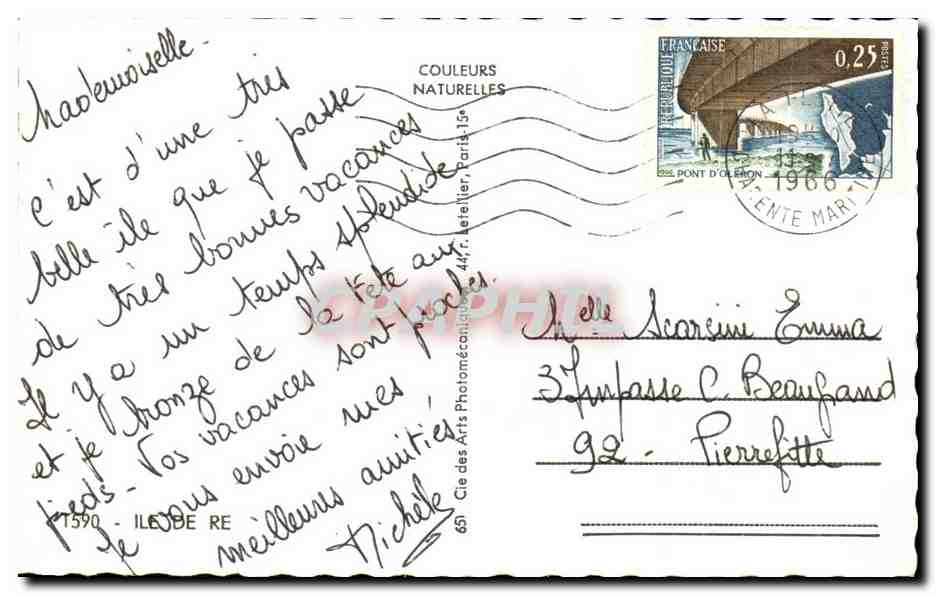 Mademoiselle-
c'est d'une très
belle île que je passe
de très bonnes vacances
Il y a un temps splendide
et je bronze de la tete aux
pieds - Vos vacances sont proches.
Je vous envoie mes
meilleurs amitiés,
Michèle
T590 - ILE DE RE
COULEURS
NATURELLES
651 Cie des Arts Photomécaniques 44, r. Letellier, Paris-15e
RÉPUBLIQUE
FRANÇAISE
0,25
POSTES
PONT D'OLÉRON
1966
ENTE MAR
CPAPHIL
Melle Scarsini Emma
3 Impasse C. Beaugand
92 - Pierrefitte